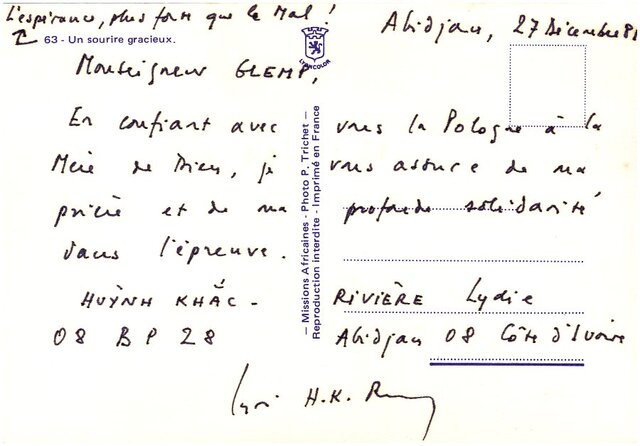 L'espérance, plus forte que le Mal !
63 - Un sourire gracieux.
LYONCOLOR
Abidjan, 27 Décembre 81
Monseigneur GLEMP,
En confiant avec vous la Pologne à la
Mère de Dieu, je vous assure de ma
prière et de ma profonde solidarité
dans l'épreuve.
HUỲNH KHẮC - RIVIÈRE Lydie
08 BP 28 Abidjan 08 Côte d'Ivoire
H.K. R
— Missions Africaines - Photo P. Trichet —
Reproduction interdite - Imprimé en France